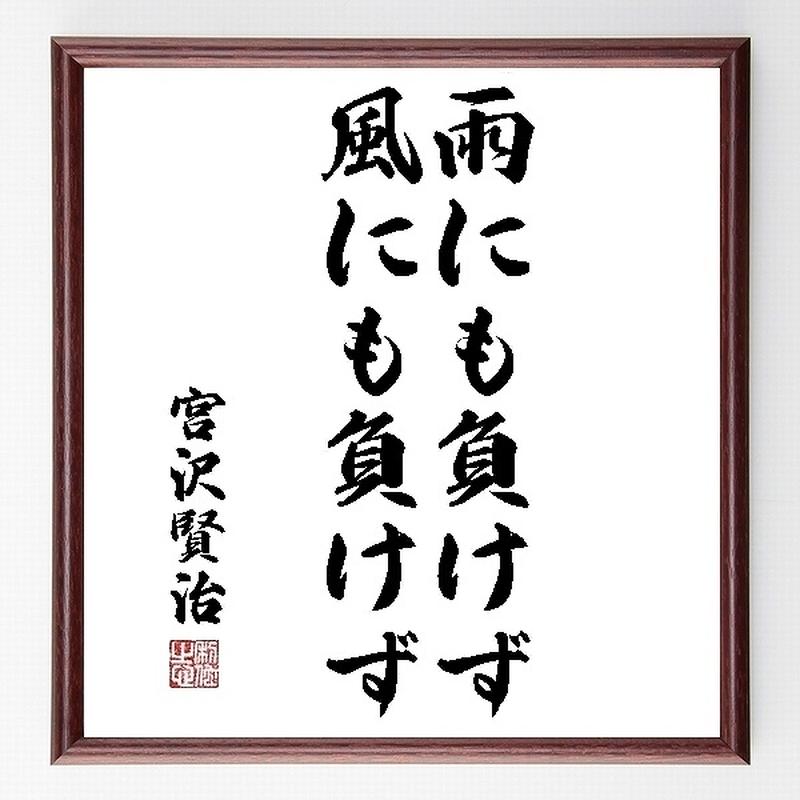 雨にも負けず
風にも負けず
宮沢賢治